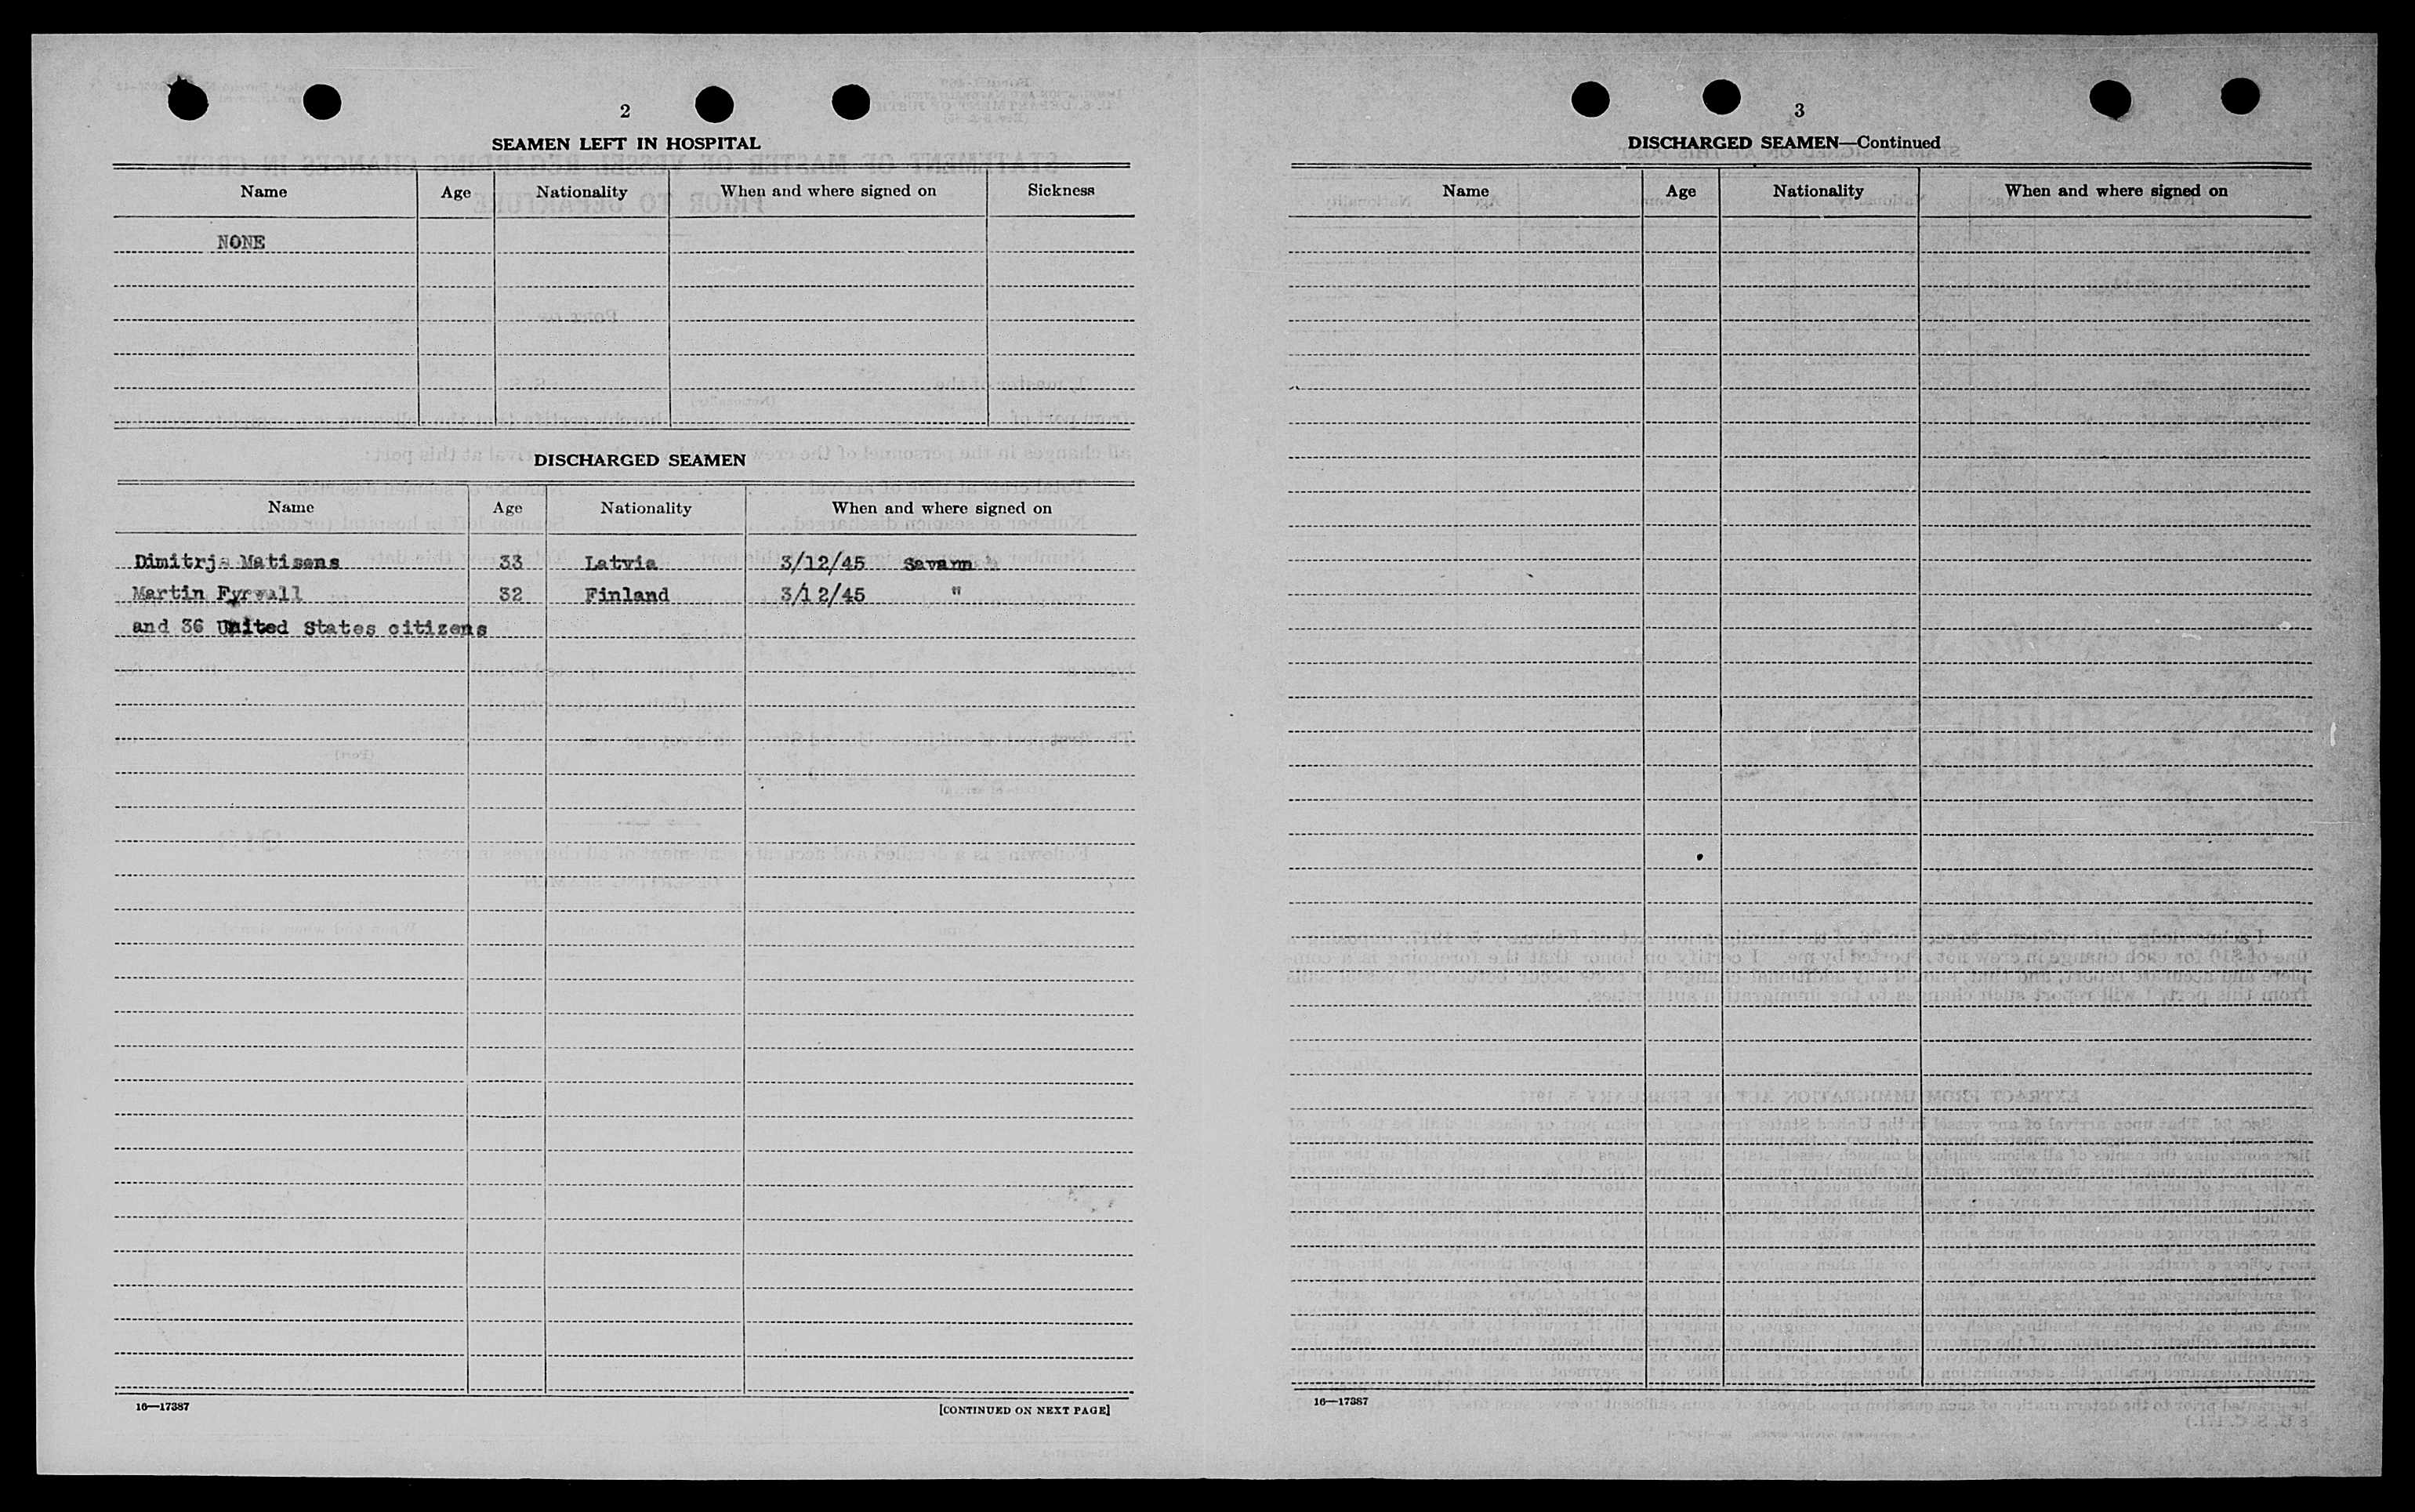 2
SEAMEN LEFT IN HOSPITAL
Name Age Nationality When and where signed on Sickness
NONE
DISCHARGED SEAMEN
Name Age Nationality When and where signed on
Dimitrjs Matisons 33 Latvia 3/12/45 Savann
Martin Fyrwall 32 Finland 3/12/45 "
and 36 United States citizens
16—17387 [CONTINUED ON NEXT PAGE]
3
DISCHARGED SEAMEN—Continued
Name Age Nationality When and where signed on
16—17387